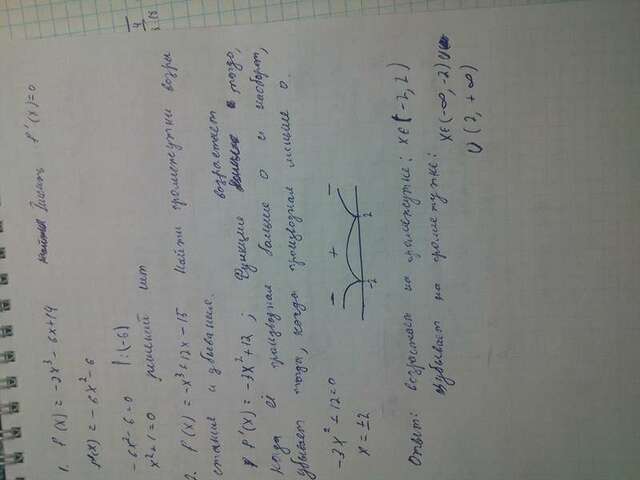 1. f(x) = -2x³ - 6x + 14 Решить f'(x)=0
f'(x) = -6x² - 6
-6x² - 6 = 0 | :(-6)
x² + 1 = 0 решений нет
2. f(x) = -x³ + 12x - 15 Найти промежутки возра
стания и убывания.
f'(x) = -3x² + 12; Функция возрастает тогда,
когда её производная больше 0 и наоборот,
убывает тогда, когда производная меньше 0.
-3x² + 12 = 0
x = ±2
- + -
-2 2
Ответ: возрастает на промежутке: x∈(-2, 2)
убывает на промежутке: x∈(-∞, -2) ∪
∪ (2, +∞)